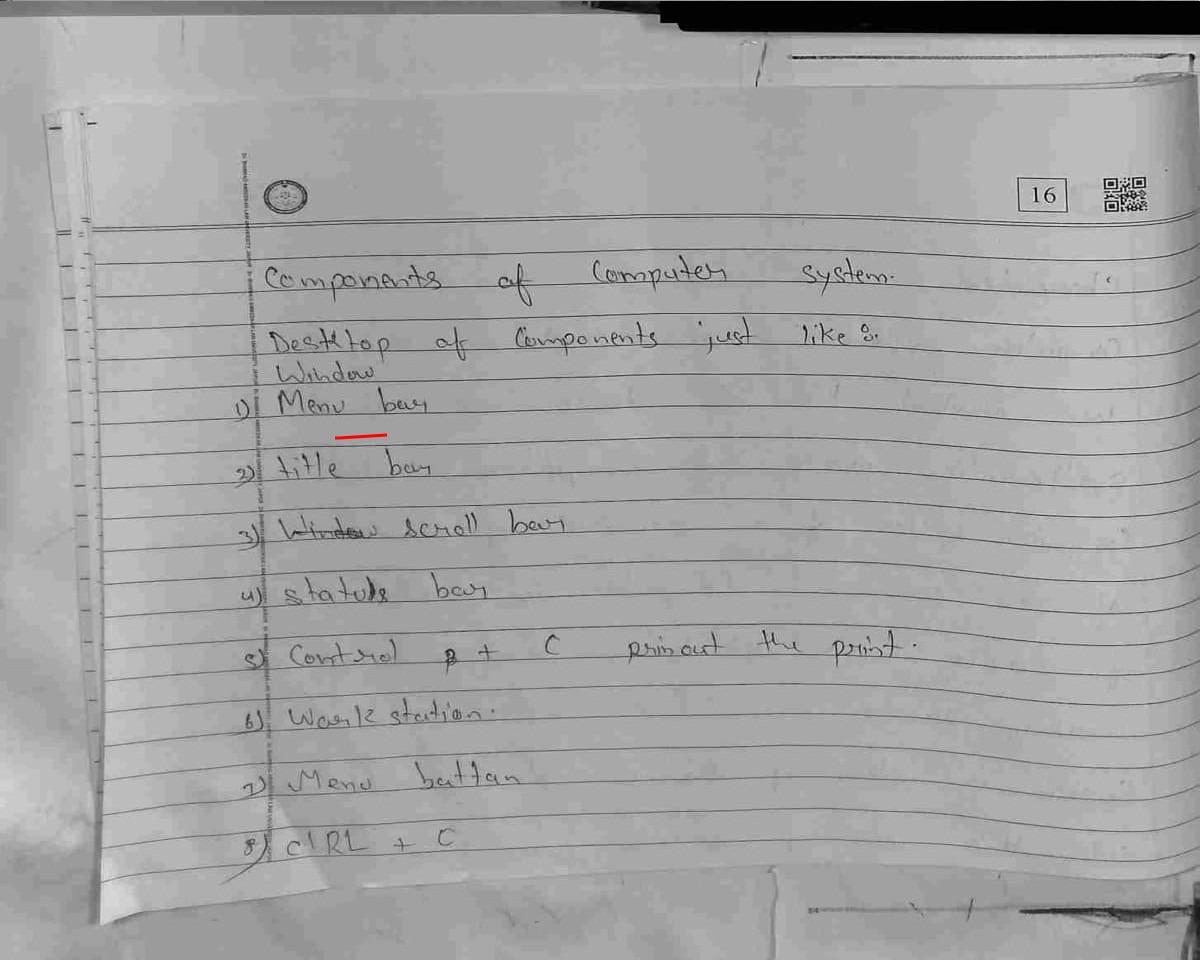 16
Components of Computer system.
Desktop of Components just like :
Window
1) Menu bar
2) title bar
3) scroll bar
4) status bar
5) Control + C prinout the print.
6) Work station.
7) Menu battan
8) CTRL + C